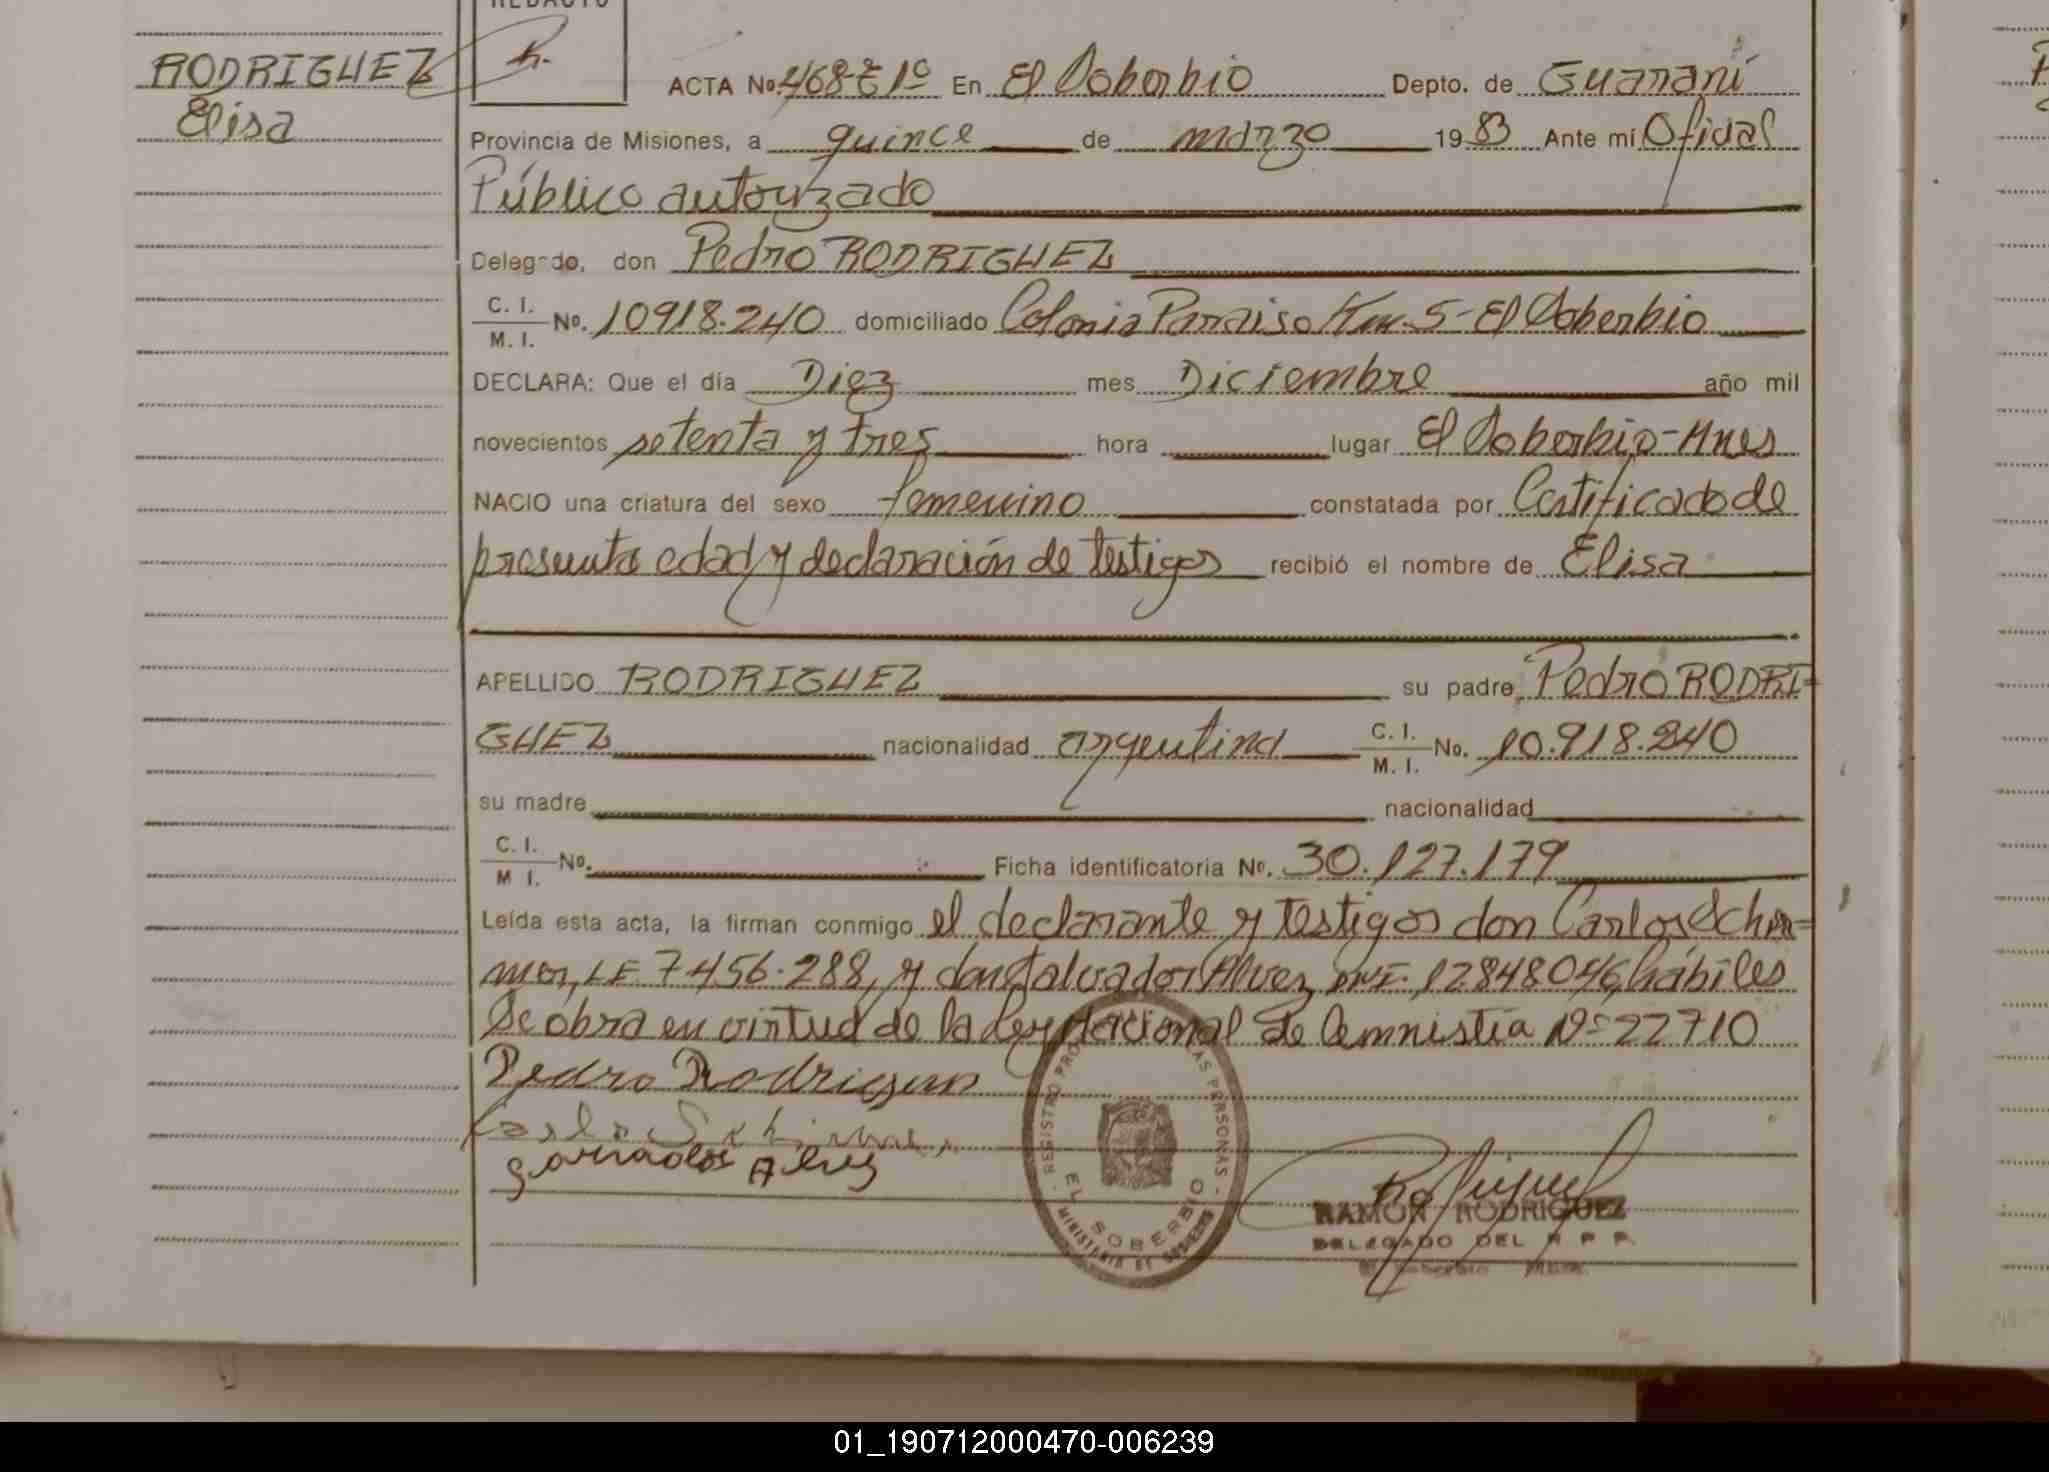 REDACTO
RODRIGUEZ
Elisa
ACTA No. 468-E1º En El Soberbio Depto. de Guaraní
Provincia de Misiones, a quince de marzo 1983 Ante mí Oficial
Público autorizado
Delegado, don Pedro RODRIGUEZ
C. I. M. I. No. 10918.240 domiciliado Colonia Paraiso Km. 5-El Soberbio
DECLARA: Que el día Diez mes Diciembre año mil
novecientos setenta y tres hora lugar El Soberbio-Mnes
NACIO una criatura del sexo femenino constatada por Certificado de
presunta edad y declaración de testigos recibió el nombre de Elisa
APELLIDO RODRIGUEZ su padre Pedro RODRI=
GUEZ nacionalidad argentina C. I. M. I. No. 10.918.240
su madre nacionalidad
C. I. M I. No. Ficha identificatoria No. 30.127.179
Leída esta acta, la firman conmigo el declarante y testigos don Carlos
LE 7456.288, y don Salvador Alvez DNI. 12848046, hábiles
Se obra en virtud de la Ley Nacional de Amnistía Nº 22710
Pedro Rodriguez
REGISTRO PERSONAS
EL SOBERBIO
MINISTERIO DE GOBIERNO
RAMON RODRIGUEZ
DELEGADO DEL R P P.
01_190712000470-006239